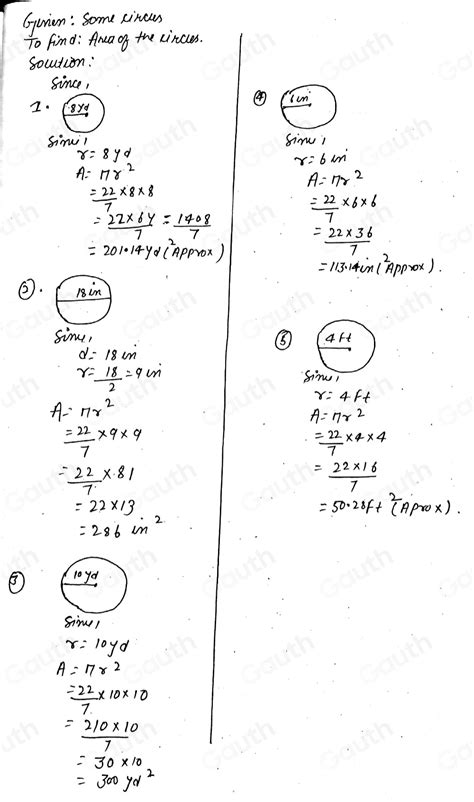 Given: Some circles
To find: Area of the circles.
Solution:
Since,
1. 8yd
Since,
r = 8yd
A = πr²
= 22/7 × 8 × 8
= 22×64/7 = 1408/7
= 201.14yd² (Approx)
②. 18in
Since,
d = 18in
r = 18/2 = 9in
A = πr²
= 22/7 × 9 × 9
= 22/7 × 81
= 22×13
= 286 in²
③ 10yd
Since,
r = 10yd
A = πr²
= 22/7 × 10 × 10
= 210×10/7
= 30 × 10
= 300 yd²
④ 6in
Since,
r = 6in
A = πr²
= 22/7 × 6 × 6
= 22×36/7
= 113.14in² (Approx).
⑤ 4ft
Since,
r = 4ft
A = πr²
= 22/7 × 4 × 4
= 22×16/7
= 50.28ft² (Aprox).
Gauth